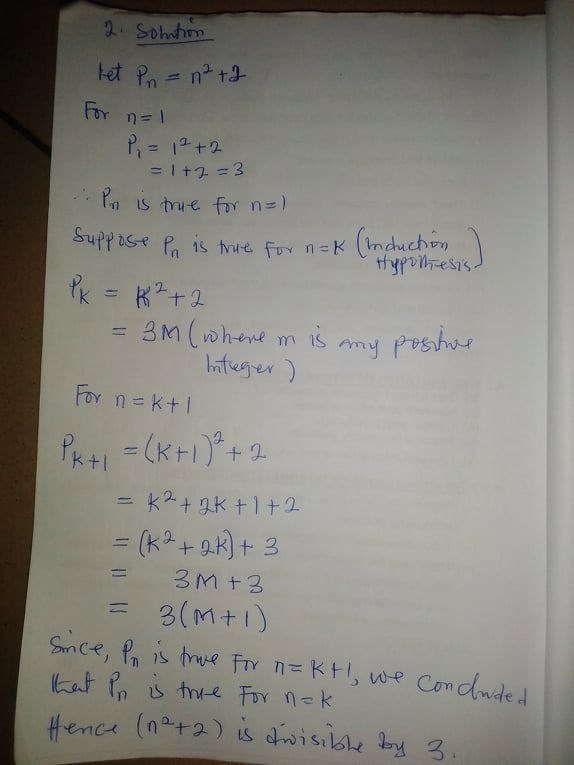 2. Solution
Let Pn = n²+2
For n=1
P₁ = 1²+2
= 1+2 = 3
∴ Pn is true for n=1
Suppose Pn is true for n=K (Induction Hypothesis)
PK = K²+2
= 3M (where m is any positive
Integer)
For n=K+1
PK+1 = (K+1)²+2
= K²+2K+1+2
= (K²+2K)+3
= 3M+3
= 3(M+1)
Since, Pn is true For n=K+1, we concluded
that Pn is true For n=K
Hence (n²+2) is divisible by 3.